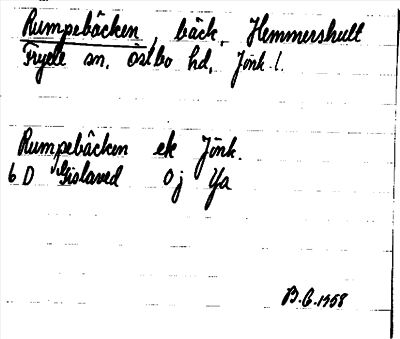 Rumpebäcken, bäck, Hemmershult
Fryele sn, Östbo hd, Jönk. l.
Rumpebäcken ek Jönk.
6 D Gislaved 0j Ya
B.G. 1958